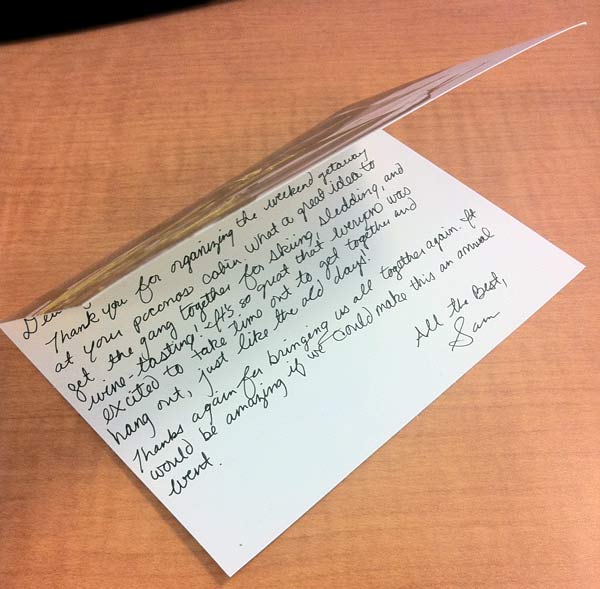 Dear
Thank you for organizing the weekend getaway
at your poconos cabin. What a great idea to
get the gang together for skiing, sledding, and
wine-tasting! It's so great that everyone was
excited to take time out to get together and
hang out, just like the old days!
Thanks again for bringing us all together again. It
would be amazing if we could make this an annual
event.
All the Best,
Sam